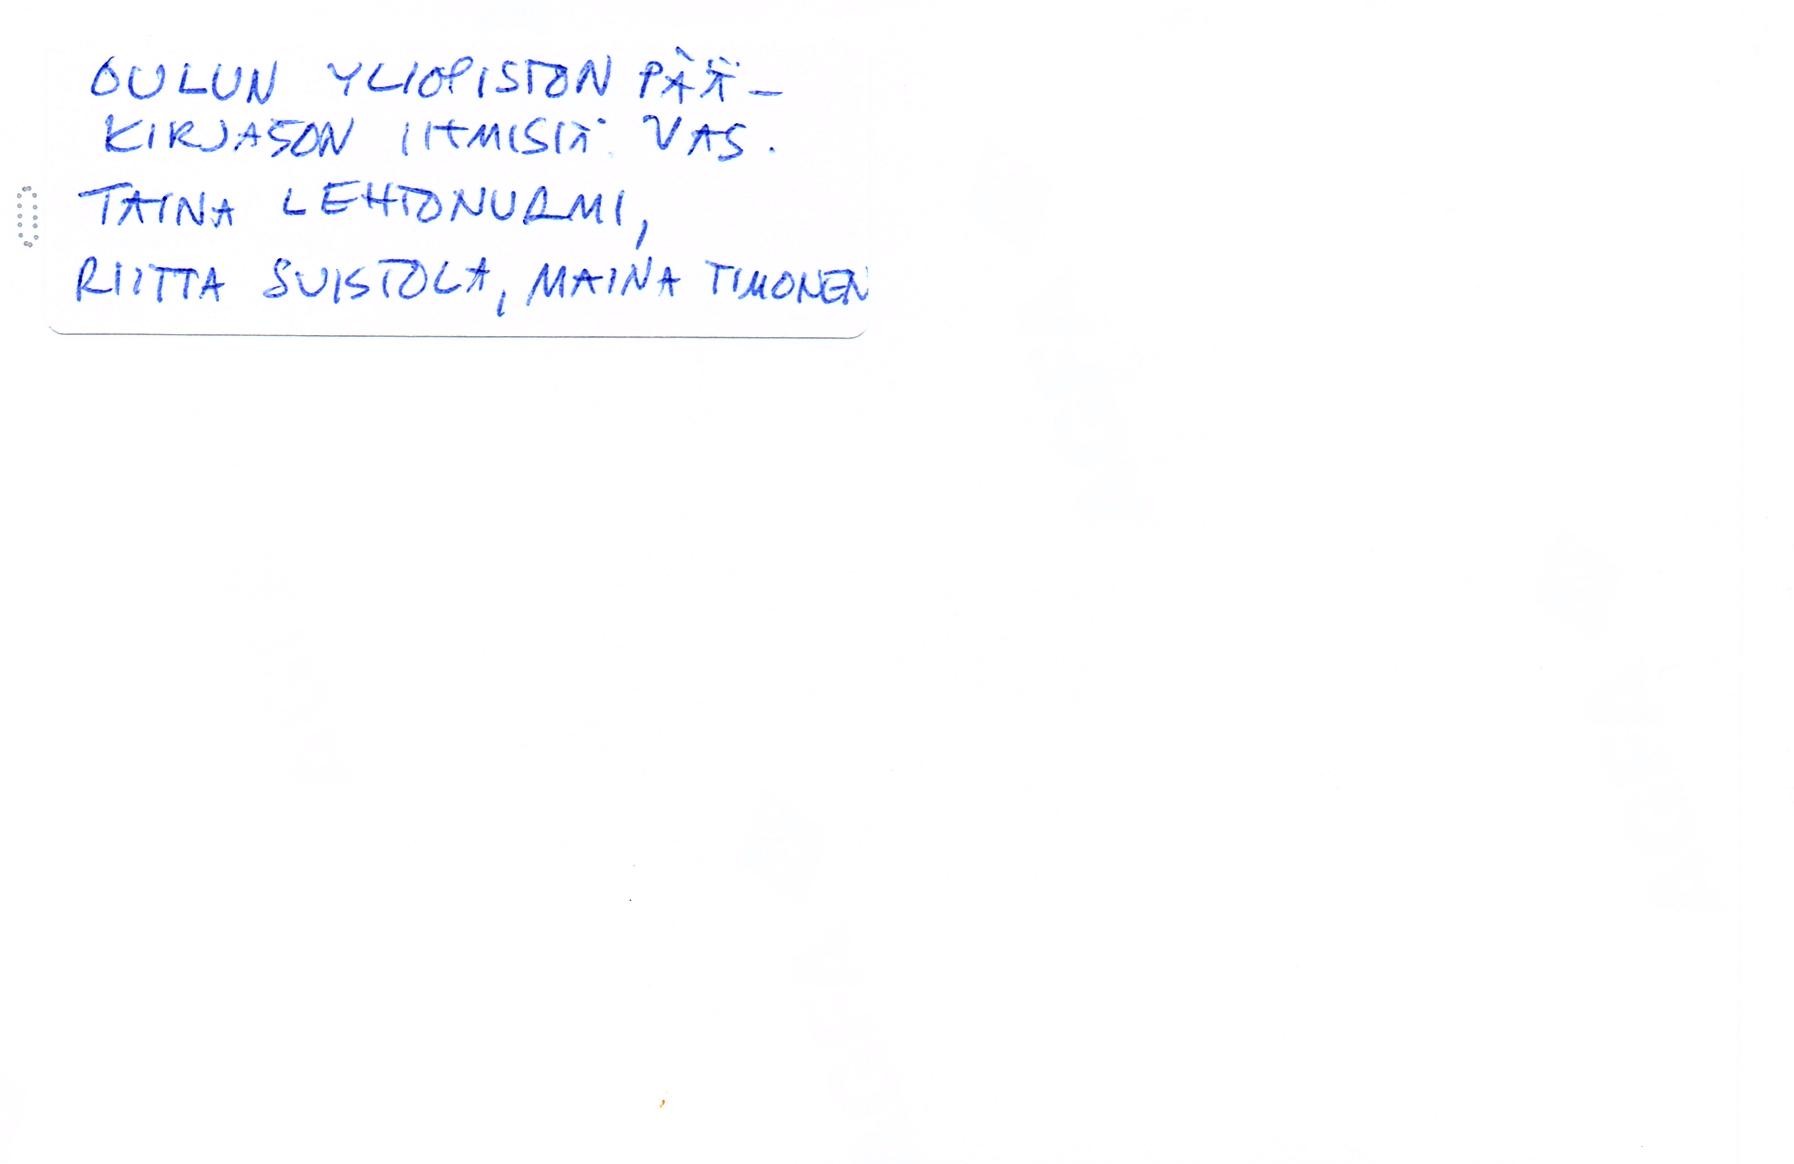 OULUN YLIOPISTON PÄÄ-
KIRJASON IHMISIÄ VAS.
TAINA LEHTONURMI,
RIITTA SUISTOLA, MAINA TIMONEN